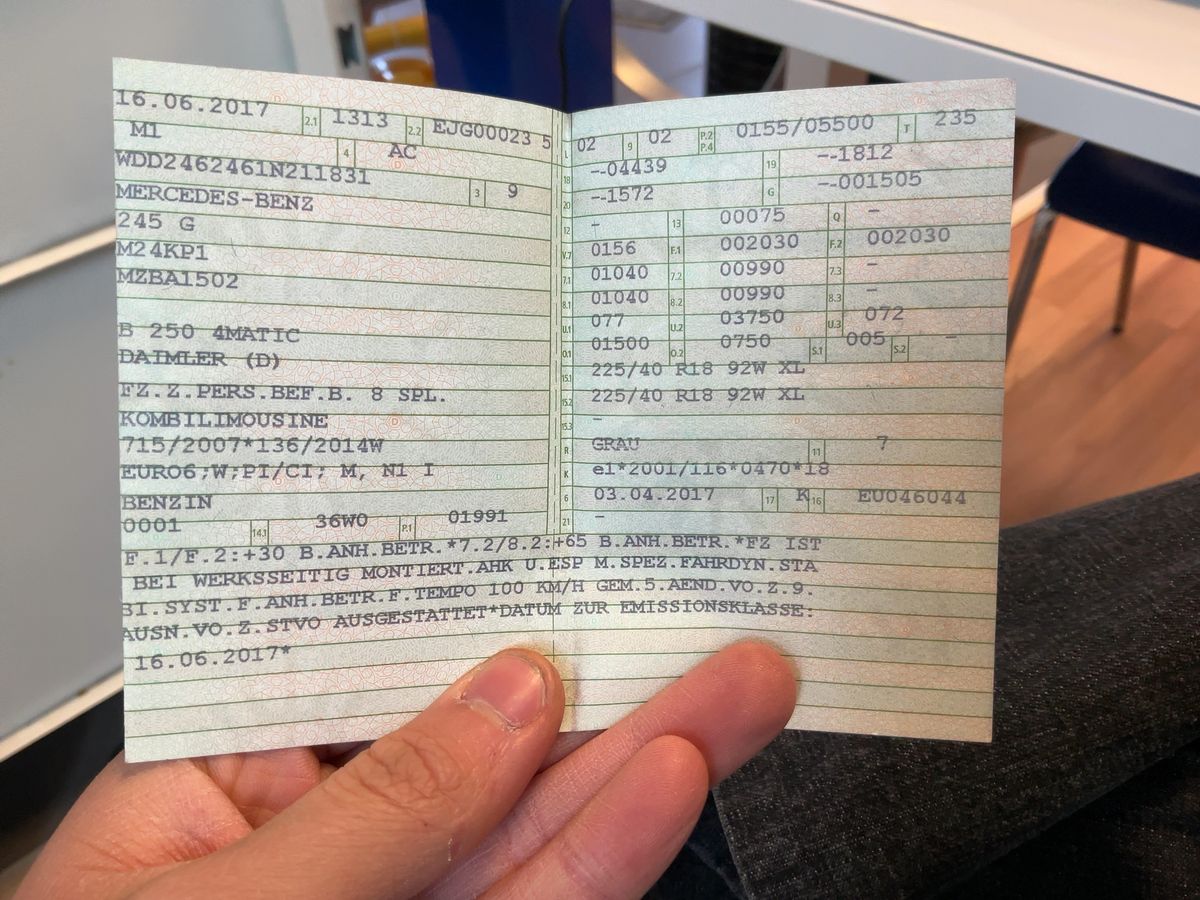 16.06.2017 2.1 1313 2.2 EJG00023 5
M1 4 AC
WDD2462461N211831 3 9
MERCEDES-BENZ
245 G
M24KP1
MZBA1502
B 250 4MATIC
DAIMLER (D)
FZ.Z.PERS.BEF.B. 8 SPL.
KOMBILIMOUSINE
715/2007*136/2014W
EURO6;W;PI/CI; M, N1 I
BENZIN
0001 14.1 36W0 P.1 01991
L 02 9 02 P.2 P.4 0155/05500 T 235
18 --04439 19 --1812
20 --1572 G --001505
12 - 13 00075 Q -
V.7 0156 F.1 002030 F.2 002030
7.1 01040 7.2 00990 7.3 -
8.1 01040 8.2 00990 8.3 -
U.1 077 U.2 03750 U.3 072
O.1 01500 O.2 0750 S.1 005 S.2 -
15.1 225/40 R18 92W XL
15.2 225/40 R18 92W XL
15.3 -
R GRAU 11 7
K e1*2001/116*0470*18
6 03.04.2017 17 K 16 EU046044
21 -
F.1/F.2:+30 B.ANH.BETR.*7.2/8.2:+65 B.ANH.BETR.*FZ IST
BEI WERKSSEITIG MONTIERT.AHK U.ESP M.SPEZ.FAHRDYN.STA
BI.SYST.F.ANH.BETR.F.TEMPO 100 KM/H GEM.5.AEND.VO.Z.9.
AUSN.VO.Z.STVO AUSGESTATTET*DATUM ZUR EMISSIONSKLASSE:
16.06.2017*